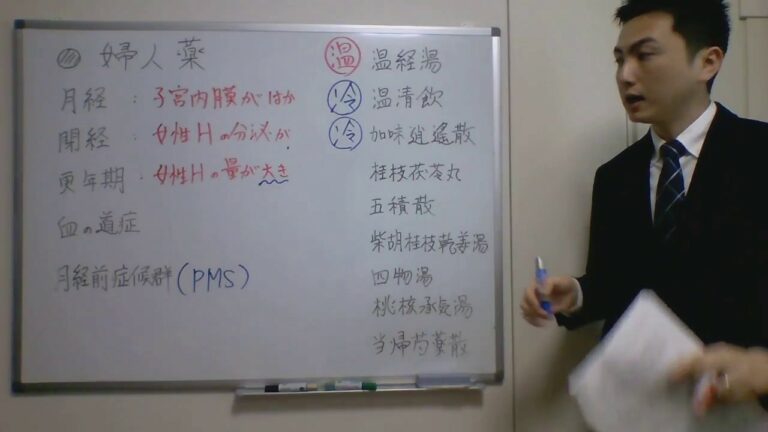 婦人薬
月経 : 子宮内膜がはが
閉経 : 女性Hの分泌が
更年期 : 女性Hの量が大き
血の道症
月経前症候群(PMS)
温 温経湯
冷 温清飲
冷 加味逍遙散
桂枝茯苓丸
五積散
柴胡桂枝乾姜湯
四物湯
桃核承気湯
当帰芍薬散